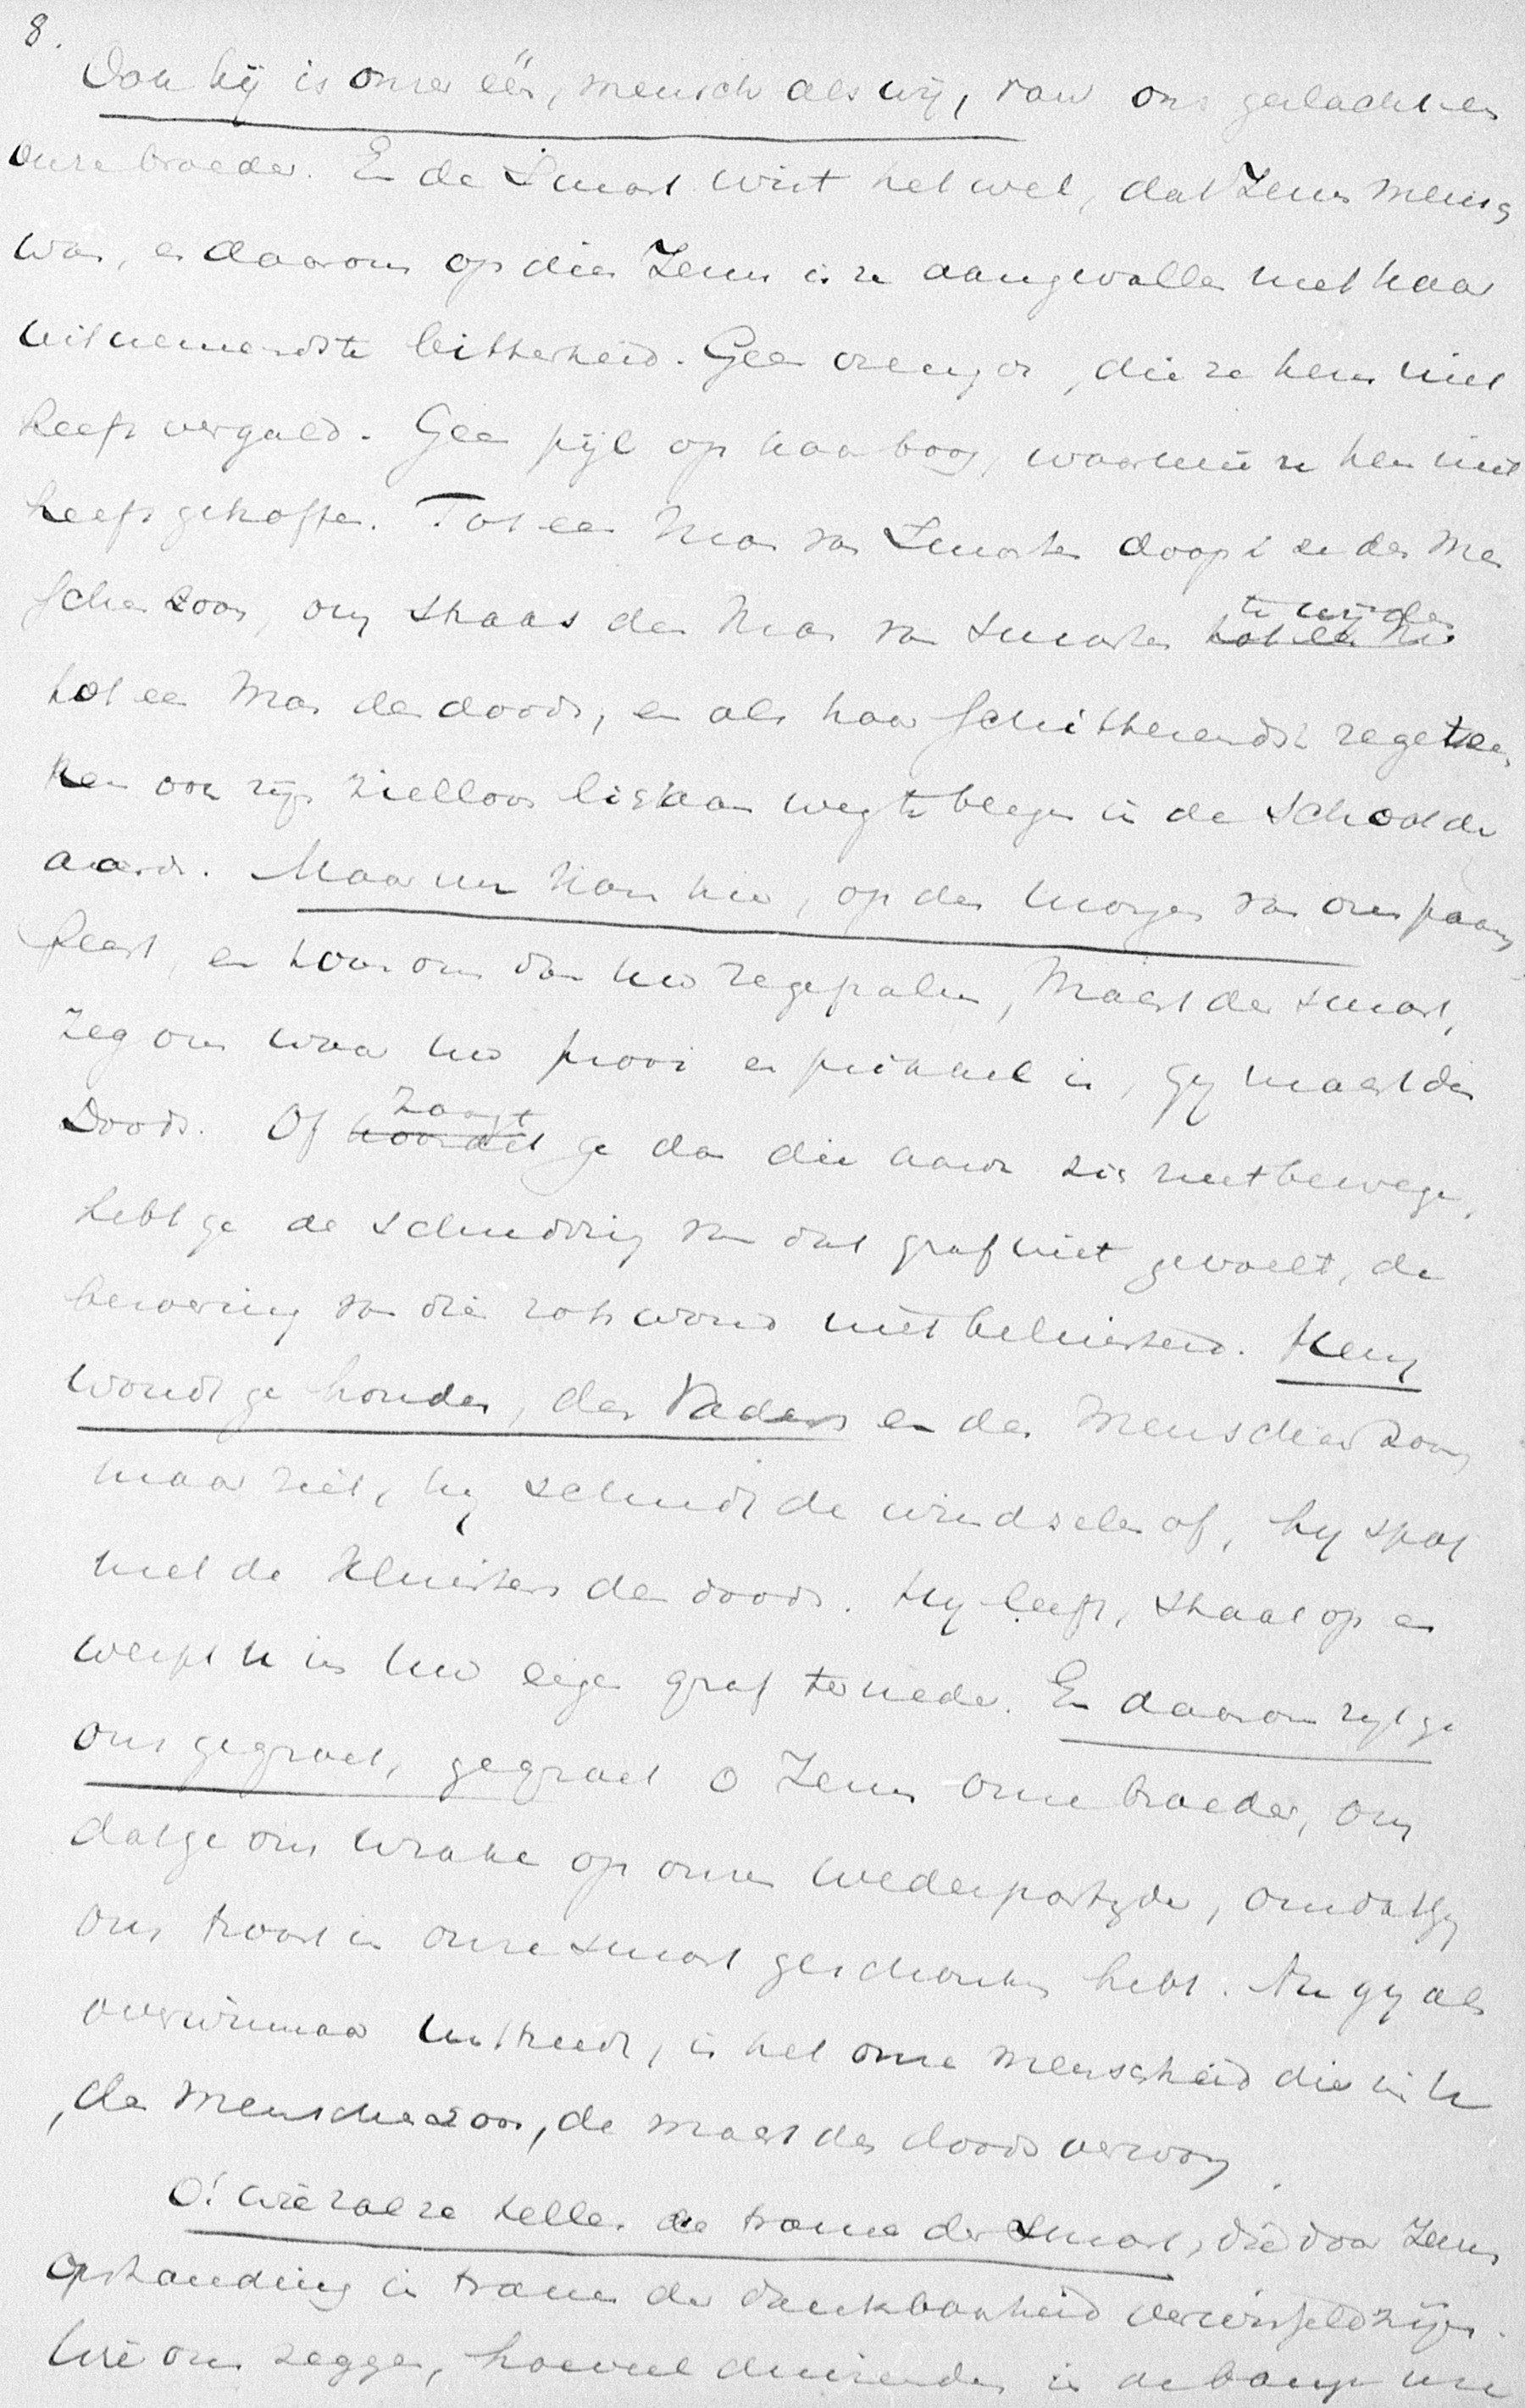 8.
Ook hij is onzer één, mensch als wij, van ons geslacht en
onze broeder. En de Smart wist het wel, dat Jezus mensch
was, en daarom op dien Jezus is ze aangevallen met haar
uitnemendste bitterheid. Geen vreugde, die ze hem niet
heeft vergald. Geen pijl op haar boog, waarmeê ze hem niet
heeft getroffen. Tot een Man van Smarten doopt ze den Men
schenzoon, om straks den Man van smarten tot een M te wijden
tot een Man des doods, en als haar schitterendst zegeteeken
ook zijn zielloos lichaam weg te bergen in de schoot der
aarde. Maar nu kom hier, op den morgen van ons paasch
feest, en toon ons dan uw zegepalm, Macht der smart,
zeg ons waar uw prooi en prikkel is, gij macht des
Doods. Of hoordet zaagt ge dan die aarde zich niet bewegen,
hebt ge de schudding van dat graf niet gevoelt, de
beroering van die rotswand niet beluisterd. Hem
woudt ge houden, des Vaders en des Menschen Zoon
maar ziet, hij schudt de windselen af, hij spot
met de kluisters des doods. Hij leeft, staat op en
werpt u in uw eigen graf ter neder. En daarom zijt ge
ons gegroet, gegroet o Jezus onze broeder, om
dat ge ons wrake op onze wederpartijder, omdat gij
ons troost in onze smart geschonken hebt. Nu gij als
overwinnaar uittreedt, is het onze menschheid die in U
, den Menschenzoon, de macht des doods verwon.
O! wie zal ze tellen de tranen der Smart, die door Jezus
opstanding in tranen der dankbaarheid verwisseld zijn.
Wie ons zeggen, hoeveel duizenden in de bange ure